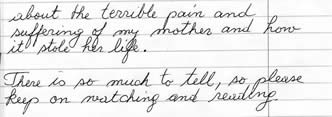 about the terrible pain and
suffering of my mother and how
it stole her life.
There is so much to tell, so please
keep on watching and reading.